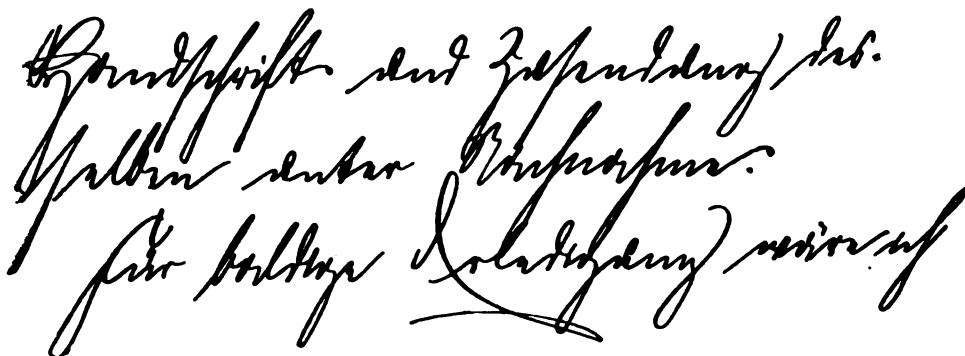 Handschrift und Zusendung des-
selben unter Nachnahme.
Für baldige Erledigung wäre ich